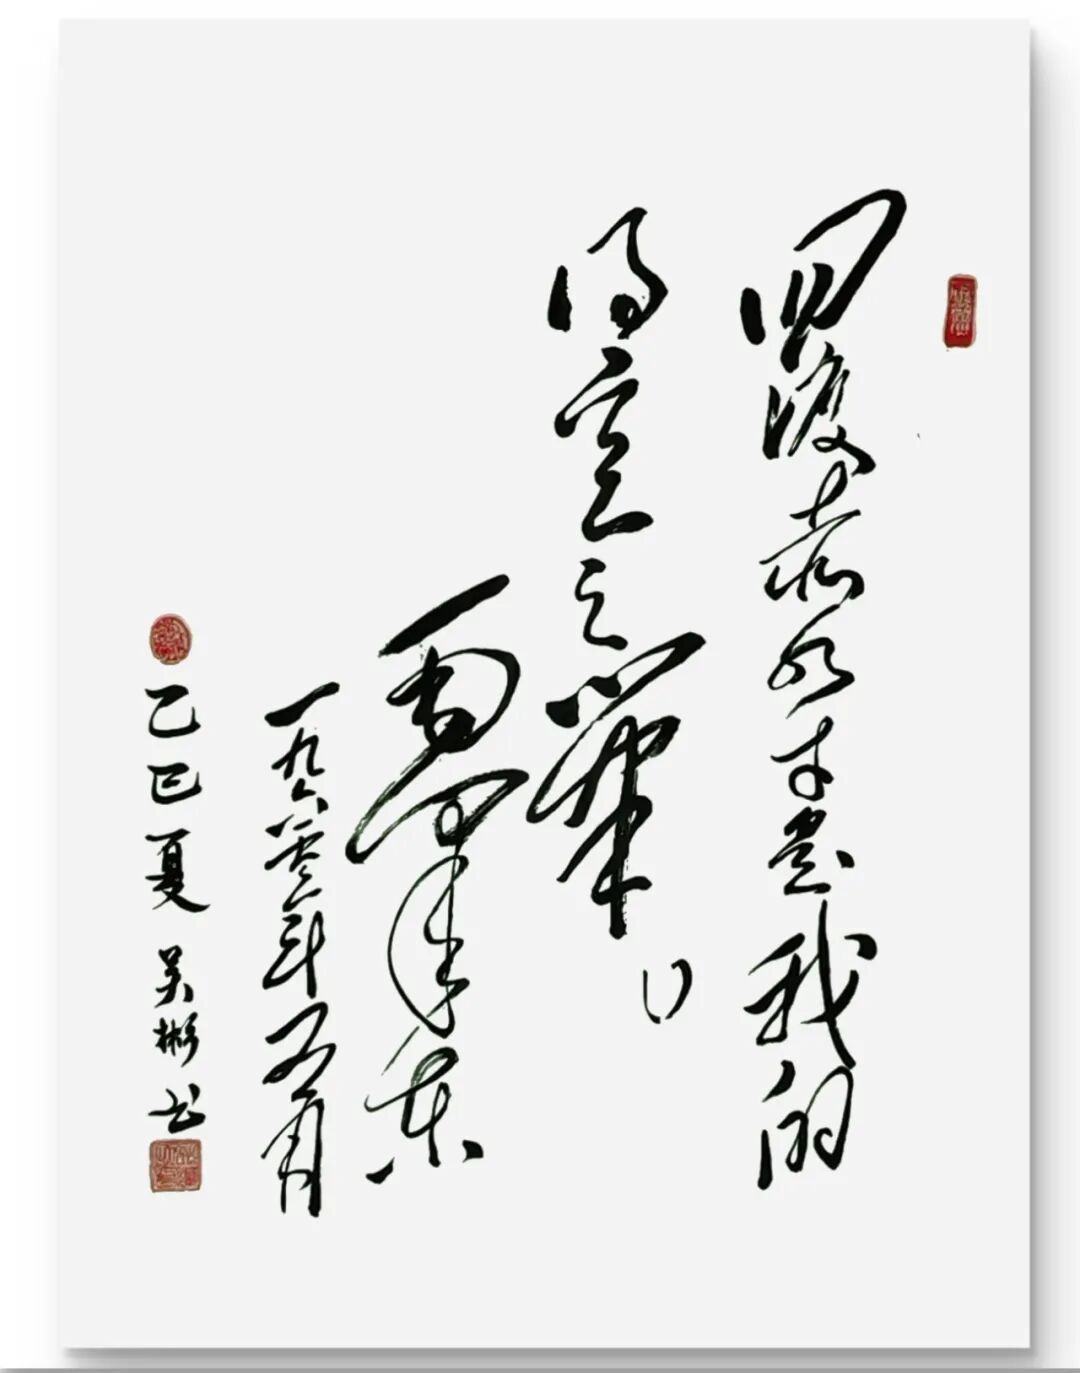 四渡赤水才是我的
得意之筆
毛泽东
一九六零年五月
乙巳夏 吴彬书